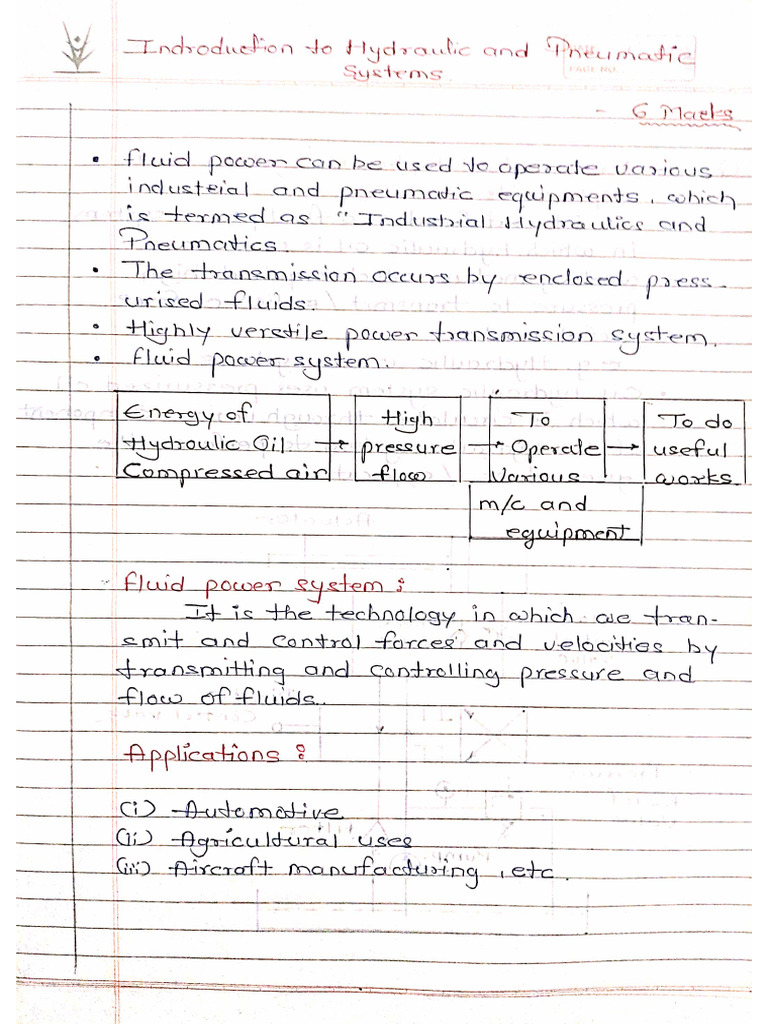 Indroduction to Hydraulic and Pneumatic
Systems.
- 6 Marks
• fluid power can be used to operate various
industrial and pneumatic equipments, which
is termed as "Industrial Hydraulics and
Pneumatics.
• The transmission occurs by enclosed press-
urised fluids.
• Highly veretile power transmission system.
• fluid power system.
Energy of
Hydroulic Oil
Compressed air
→
High
pressure
flow
→
To
Operate
Various
m/c and
equipment
→
To do
useful
works
fluid power system :
It is the technology in which we tran-
smit and control forces and velocities by
transmitting and controlling pressure and
flow of fluids.
Applications :
(i) Automotive
(ii) Agricultural uses
(iii) Aircraft manufacturing, etc.